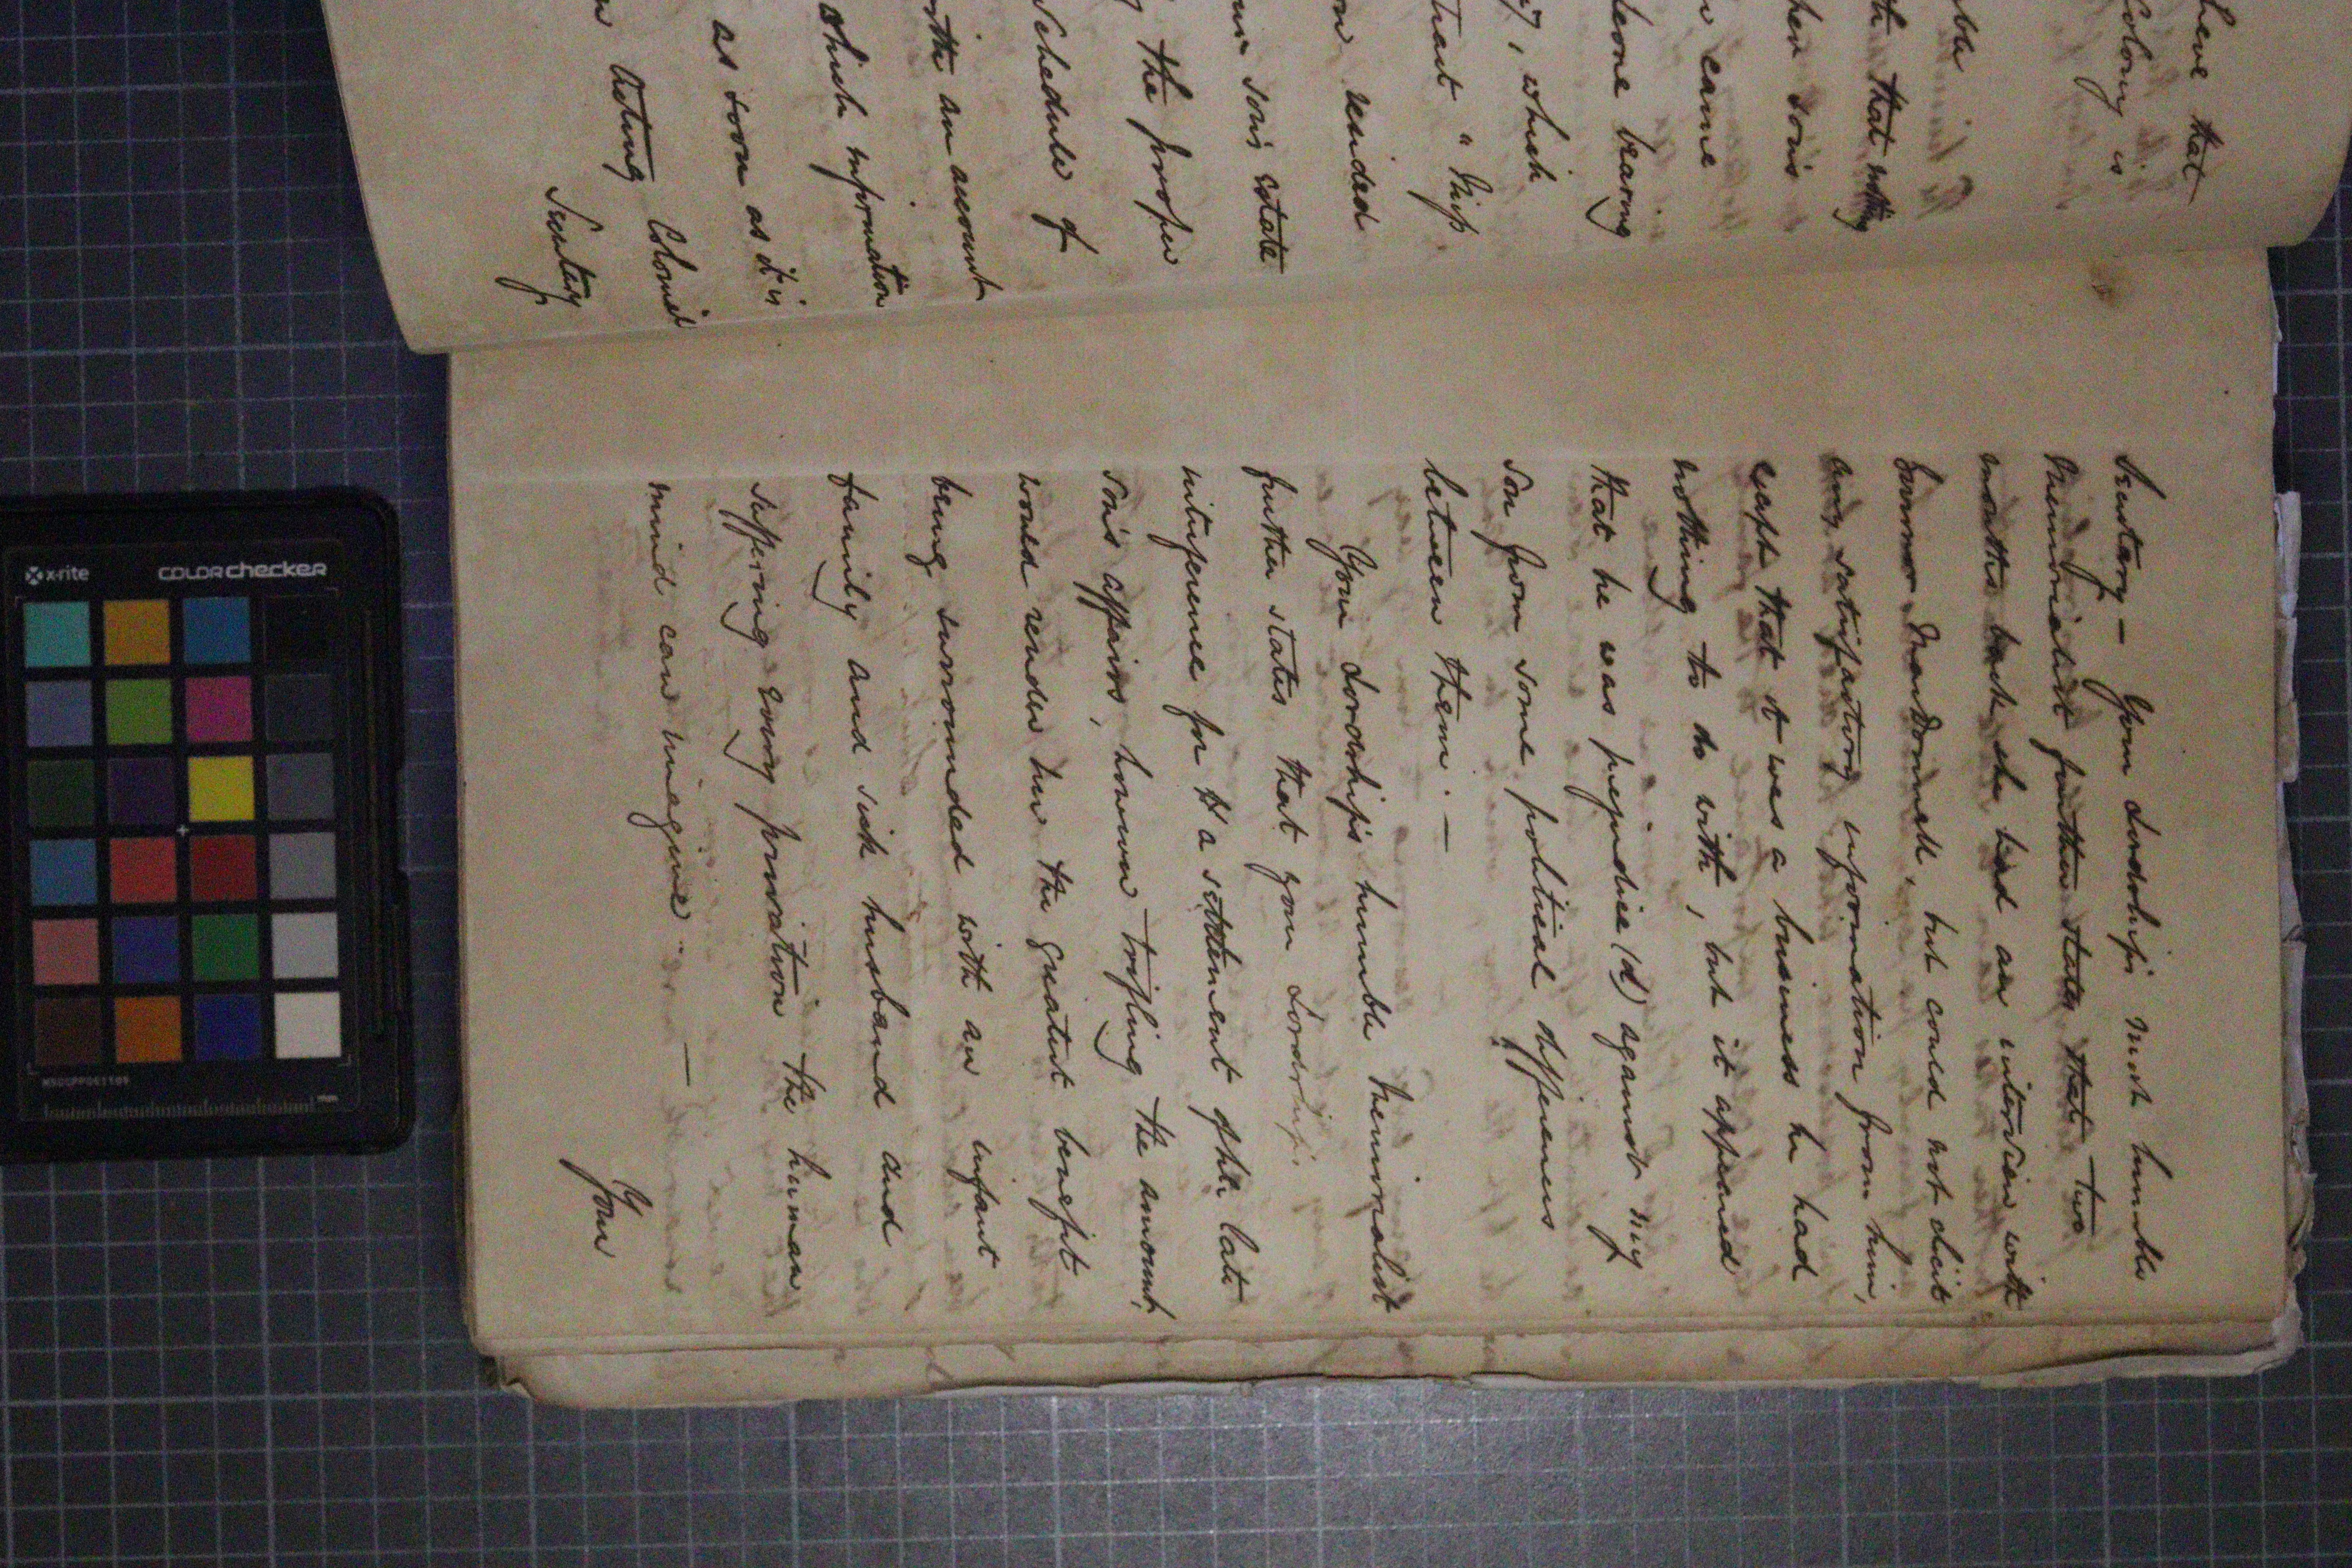 lieve that
Colony is
able
th that nothing
her son's
r came
leone bearing
, which
that "Miss
on resided
our son's estate
g the proper
Schedule of
with an account
which information
as soon as it is
Acting Colonial
Secretary
Secretary – Your Lordship's most humble
Memorialist further states that two
months back she had an interview with
Governor MacDonnell, but could not elicit
any satisfactory information from him,
except that it was a business he had
nothing to do with, but it appeared
that he was prejudice(d) against my
son from some political differences
between them. –
Your Lordship's humble Memorialist
further states that your Lordship's
interference for a settlement of the late
son's affairs, however trifling the amount,
would render her the greatest benefit
being surrounded with an infant
family and sick husband and
suffering every privation the human
mind can imagine. —
Your
x-rite COLORchecker
mm